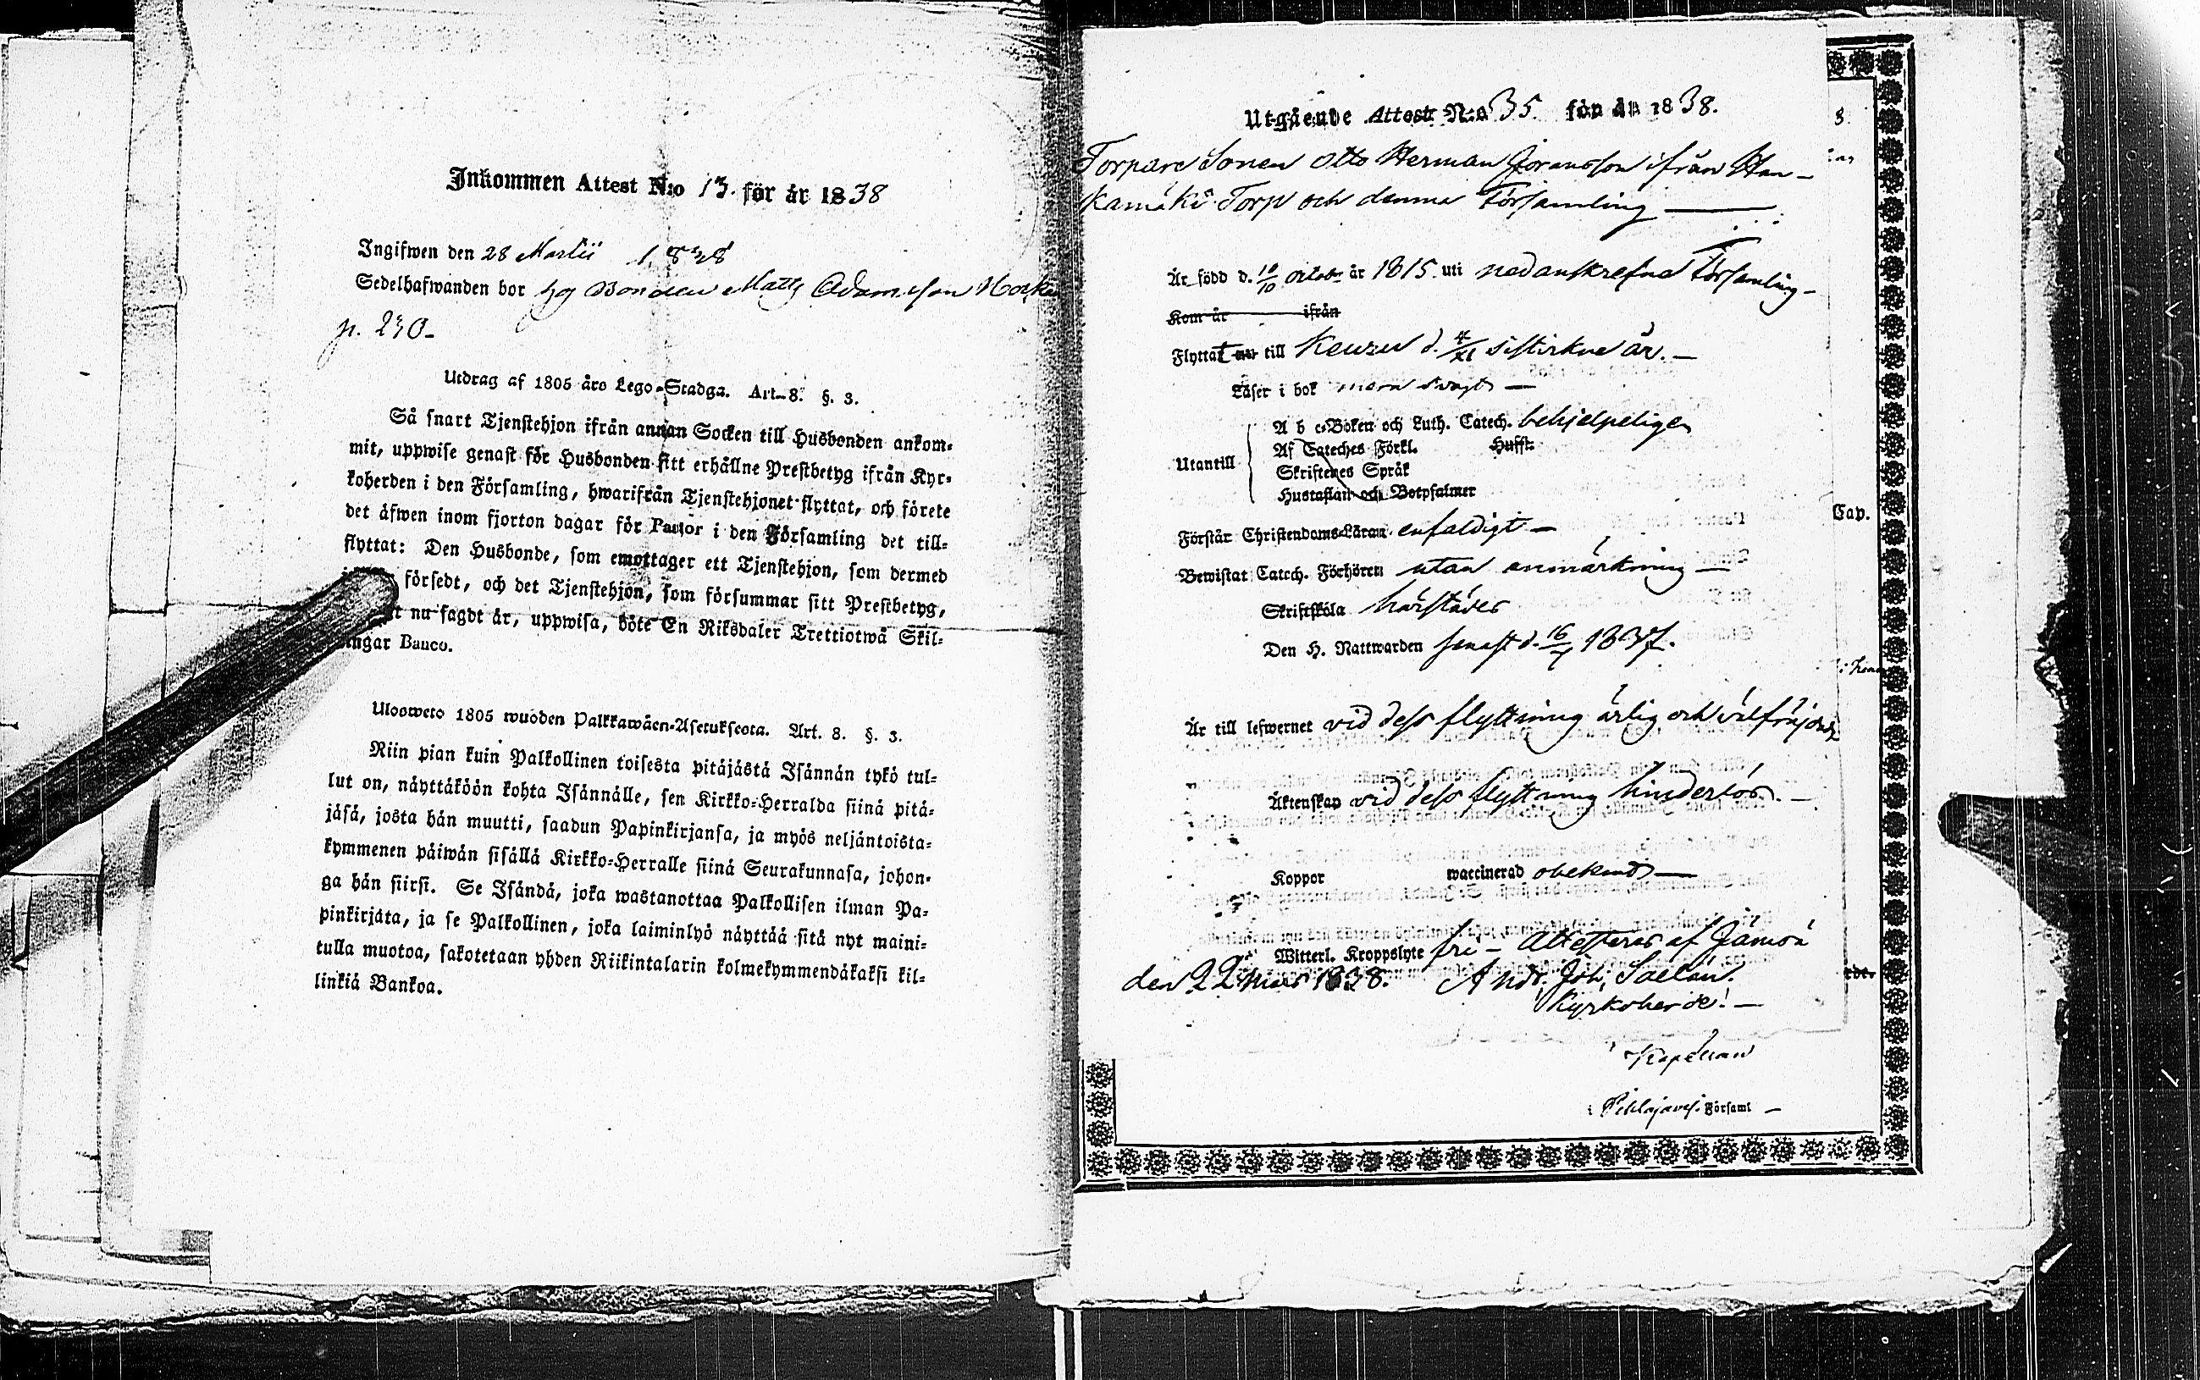 Inkommen Attest N:o 13. för år 1838
Ingifwen den 28 Martii 1838
Sedelhafwanden bor hg Bonden Matts Adamsson
p. 230-
Utdrag af 1805 års Lego-Stadga. Art. 8. §. 3.
Så snart Tjenstehjon ifrån annan Socken till Husbonden ankom-
mit, uppwise genast för Husbonden sitt erhållne Prestbetyg ifrån Kyr-
koherden i den Församling, hwarifrån Tjenstehjonet flyttat, och förete
det äfwen inom fjorton dagar för Pastor i den Församling det till-
flyttat: Den Husbonde, som emottager ett Tjenstehjon, som dermed
försedt, och det Tjenstehjon, som försummar sitt Prestbetyg,
nu sagdt är, uppwisa, böte En Riksdaler Trettiotwå Skil-
lingar Banco.
Uloswето 1805 wuoden Palkkawäen-Asetuksesta. Art. 8. §. 3.
Niin pian kuin Palkollinen toisesta pitäjästä Isännän tykö tul-
lut on, näyttäköön kohta Isännälle, sen Kirkko-Herralda siinä pitä-
jäsä, josta hän muutti, saadun Papinkirjansa, ja myös neljäntoista-
kymmenen päiwän sisällä Kirkko-Herralle siinä Seurakunnasa, johon-
ga hän siirsi. Se Isändä, joka wastanottaa Palkollisen ilman Pa-
pinkirjata, ja se Palkollinen, joka laiminlyö näyttää sitä nyt maini-
tulla muotoa, sakotetaan yhden Riikintalarin kolmekymmendäkaksi kil-
linkiä Bankoa.
Utgående Attest N:o 35. för år 1838.
Torpare Sonen Otto Herman Göransson ifrån Han-
kamäki Torp och denna Församling
Är född d. 10/10 år 1815. uti nedanskrefne Församling-
Kom år ifrån
Flyttat nu till Keuru d. sistledne år.-
Läser i bok svagt -
Utantill
A b c-Boken och Luth. Catech. behjelpeligen
Af Cateches Förkl. Hufst.
Skriftenes Språk
Hustaflan och Botpsalmer
Förstår Christendoms-Läran enfaldigt -
Bewistat Catech. Förhören utan anmärkning -
Skriftskola härstädes
Den H. Nattwarden senast d. 16/7 1837.
Är till lefwernet vid dess flyttning ärlig och välfräjdad
Äktenskap vid dess flyttning hinderlös. -
Koppor waccinerad obekand -
Witterl. Kroppslyte fri - Attesteras af Jämsä
den 22 Mars 1838. And. Joh. Saelan.
Kyrkoherde. -
Kapellan
i Pihlajaves. Församl -
8.
Cap.